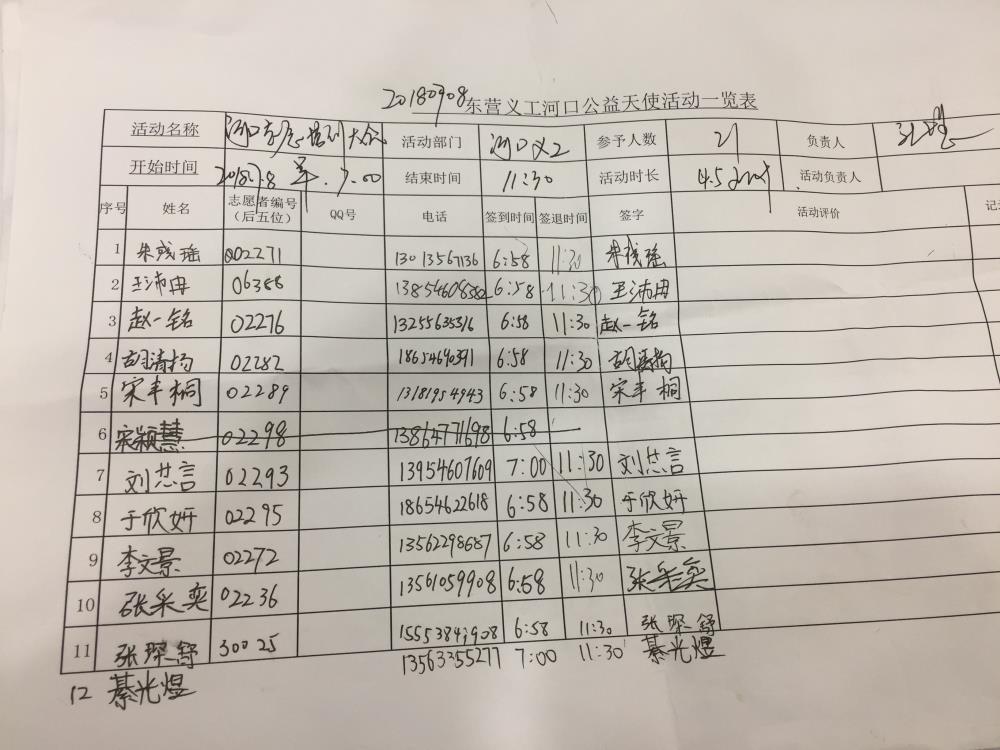 20180908东营义工河口公益天使活动一览表
活动名称 河口 活动部门 河口义工 参予人数 21 负责人
开始时间 2018.9.8 7:00 结束时间 11:30 活动时长 4.5 活动负责人
序号 姓名 志愿者编号（后五位） QQ号 电话 签到时间 签退时间 签字 活动评价
1 002271 13013567136 6:58 11:30
2 王沛冉 06388 6:58 11:30 王沛冉
3 赵一铭 02276 13255635316 6:58 11:30 赵一铭
4 胡清扬 02282 18654690391 6:58 11:30 胡清扬
5 宋丰桐 02289 13181954943 6:58 11:30 宋丰桐
6 宋颖慧 02298 13864771698 6:58
7 刘芸言 02293 13954607609 7:00 11:30 刘芸言
8 于欣妍 02295 18654622618 6:58 11:30 于欣妍
9 李文景 02272 13562298687 6:58 11:30 李文景
10 张采奕 02236 13561059908 6:58 11:30 张采奕
11 张琛舒 30025 15553841908 6:58 11:30 张琛舒
12 綦光煜 13563355277 7:00 11:30 綦光煜